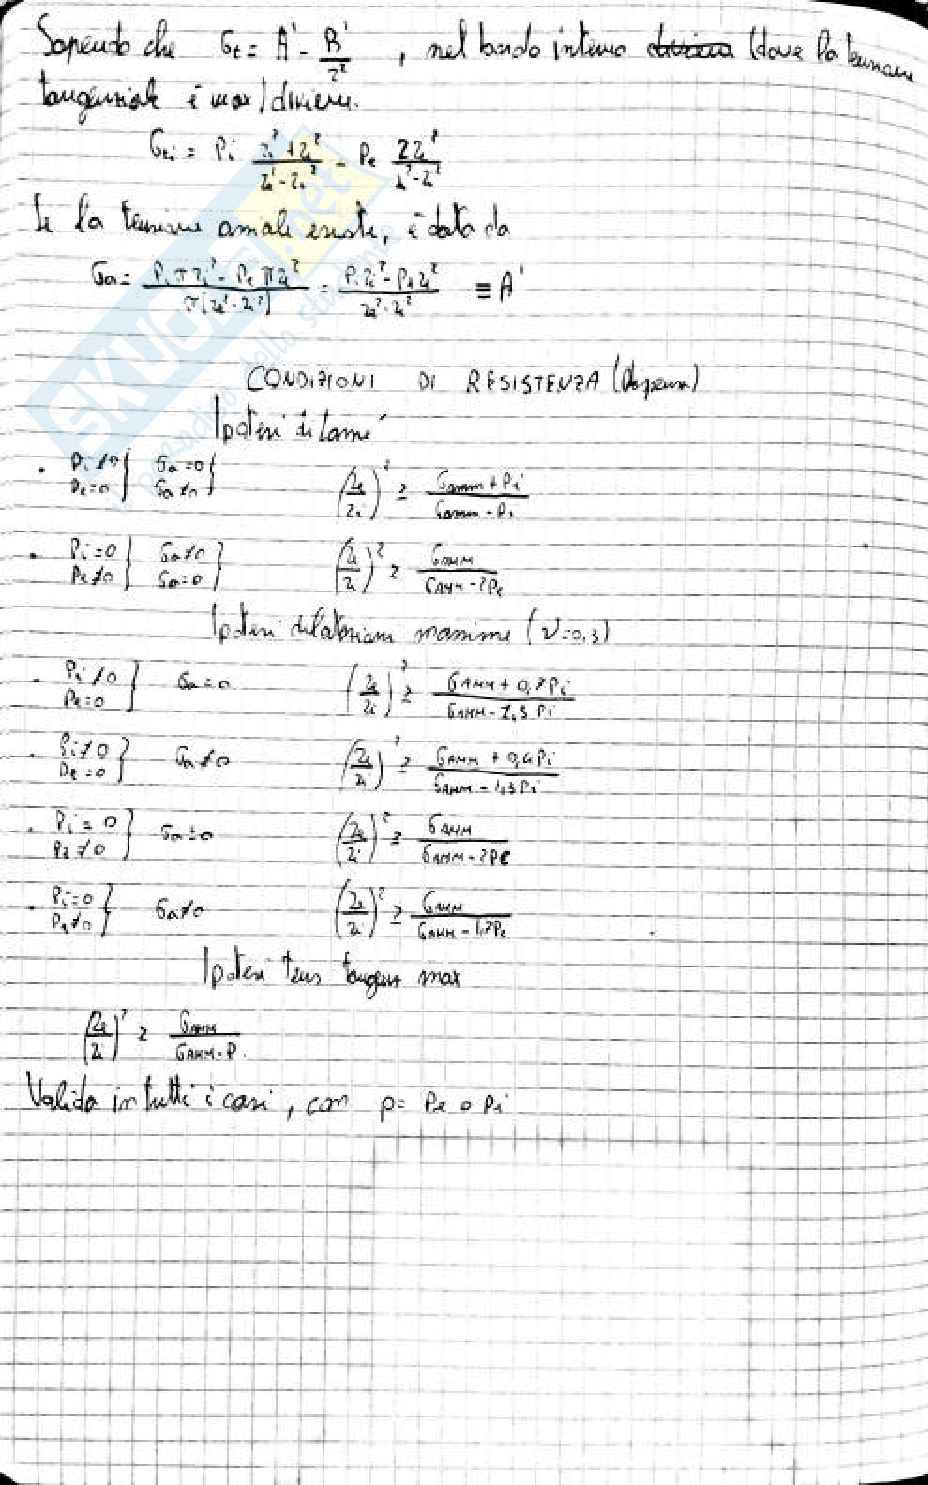 Sapendo che σt = A' - B'/r², nel bordo interno (dove la tensione
tangenziale è max) diviene.
σti = Pi (re²+ri²)/(re²-ri²) - Pe 2re²/(re²-ri²)
Se la tensione assiale esiste, è data da
σa = (Pi π ri² - Pe π re²)/(π(re²-ri²)) = (Pi ri² - Pe re²)/(re²-ri²) ≡ A'
CONDIZIONI DI RESISTENZA
Ipotesi di Lamé
• Pi≠0 Pe=0 } σa=0 σa≠0 } (re/ri)² ≥ (σamm + Pi)/(σamm - Pi)
• Pi=0 Pe≠0 } σa≠0 σa=0 } (re/ri)² ≥ σAMM/(σAMM - 2Pe)
Ipotesi dilatazioni massime (ν=0,3)
• Pi≠0 Pe=0 } σa=0 (re/ri)² ≥ (σAMM + 0,7Pi)/(σAMM - 1,3Pi)
• Pi≠0 Pe=0 } σa≠0 (re/ri)² ≥ (σAMM + 0,4Pi)/(σAMM - 1,3Pi)
• Pi=0 Pe≠0 } σa=0 (re/ri)² ≥ σAMM/(σAMM - 2Pe)
• Pi=0 Pe≠0 } σa≠0 (re/ri)² ≥ σAMM/(σAMM - 1,7Pe)
Ipotesi tens tangenz max
(re/ri)² ≥ σAMM/(σAMM - P)
Valida in tutti i casi, con p = Pe o Pi